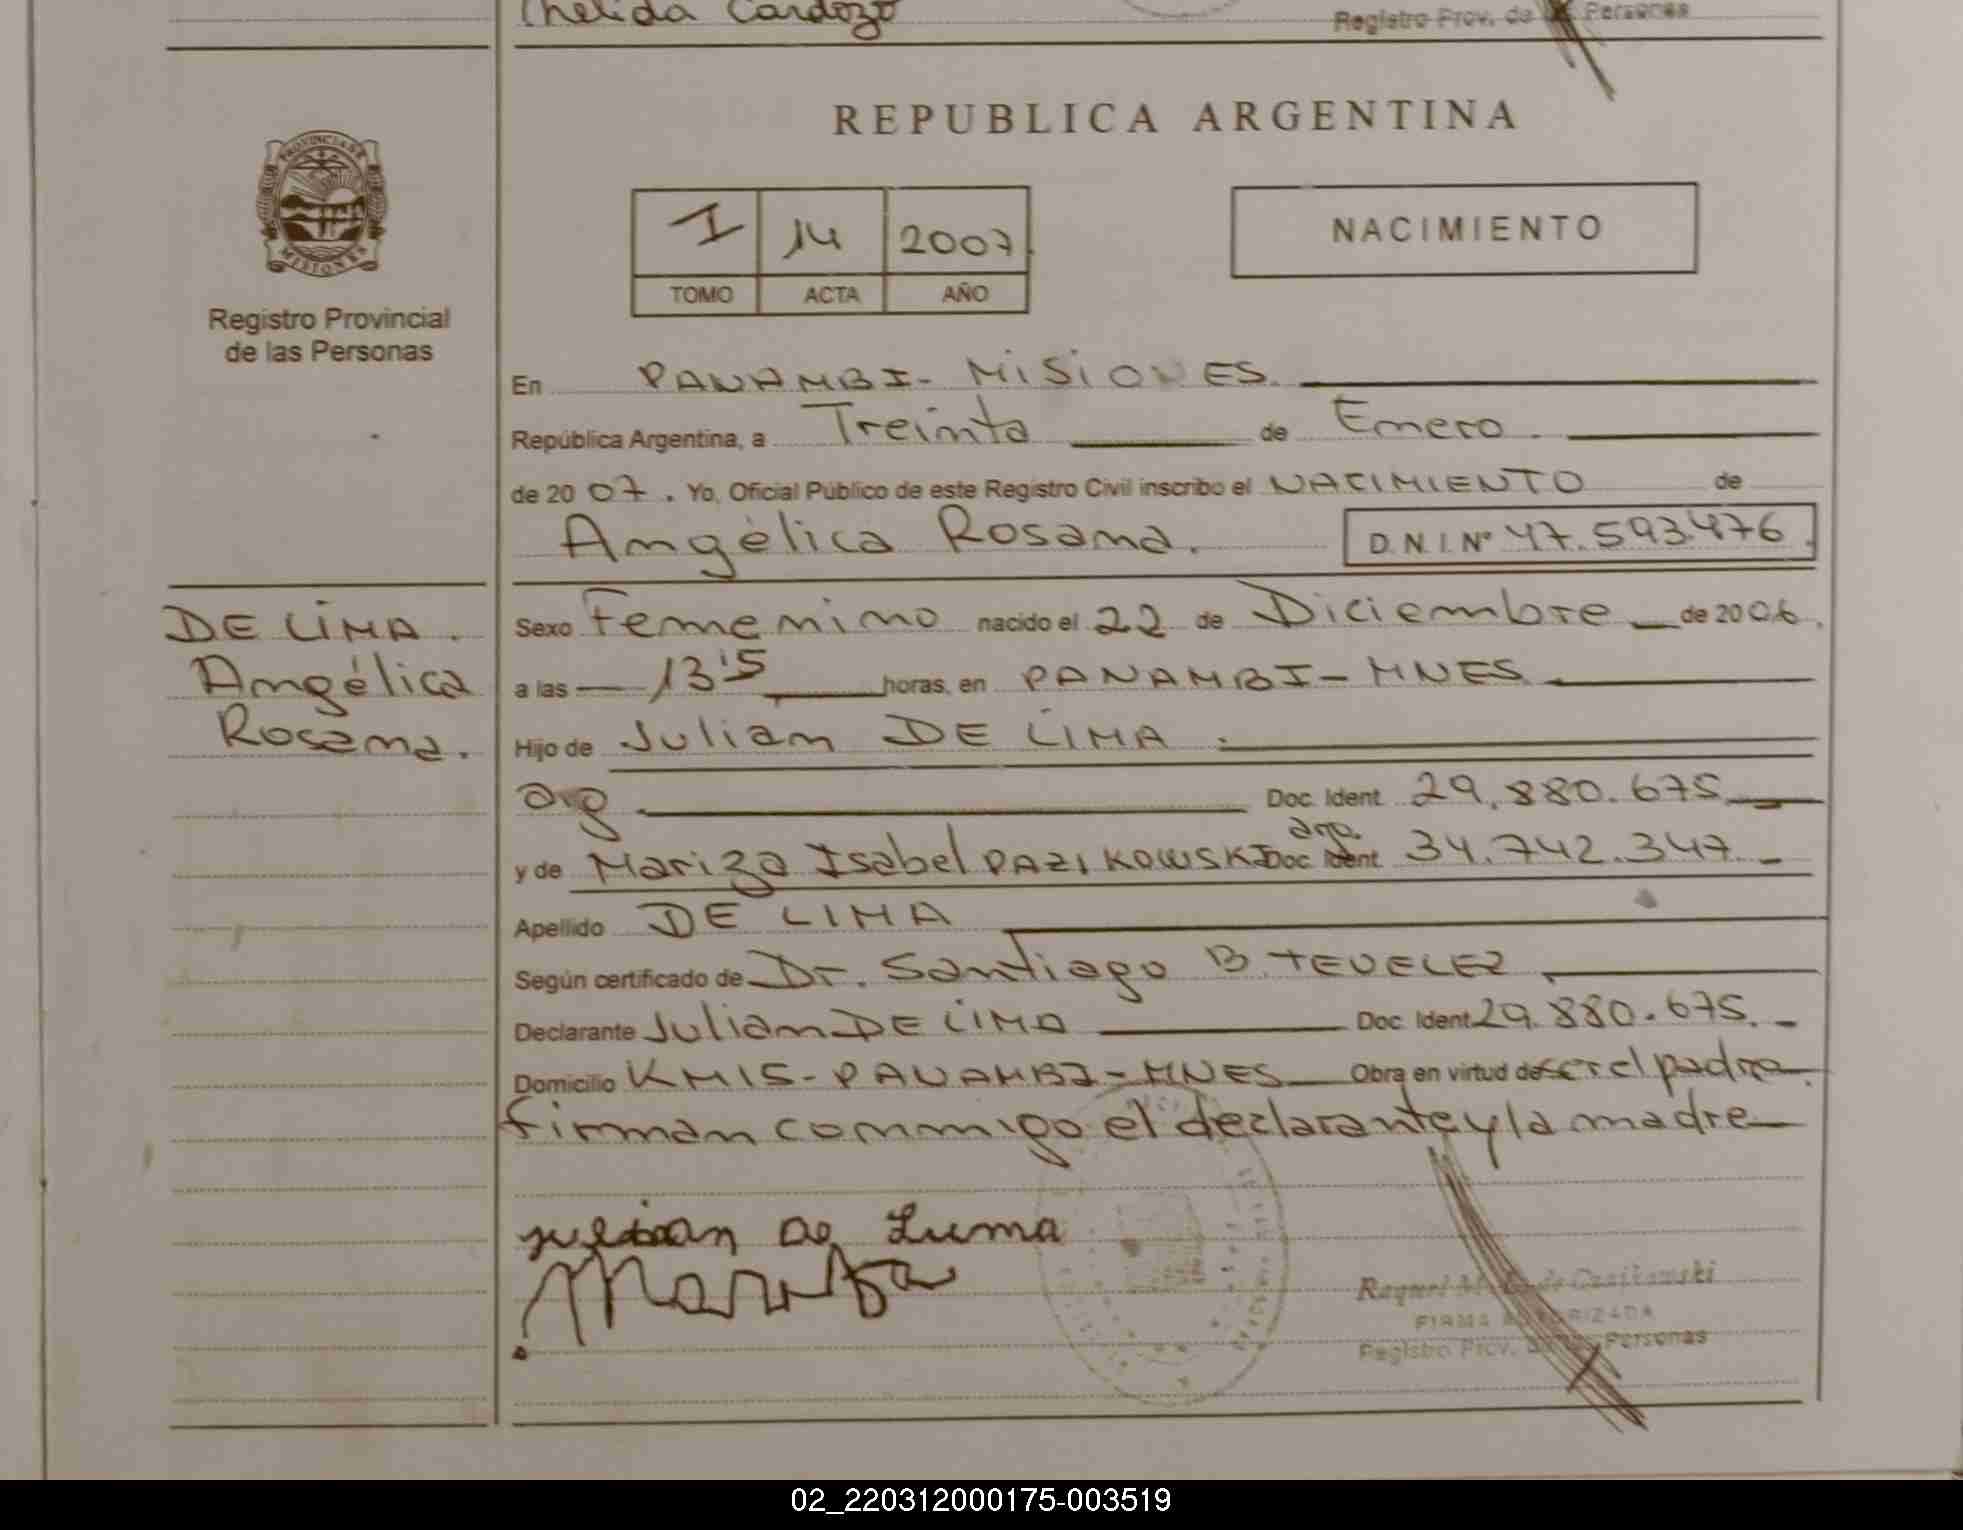 Thelida Cardozo
Registro Prov. de las Personas
REPUBLICA ARGENTINA
PROVINCIA DE
MISIONES
Registro Provincial
de las Personas
I 14 2007
TOMO ACTA AÑO
NACIMIENTO
En PANAMBI - MISIONES.
República Argentina, a Treinta de Enero.
de 2007. Yo, Oficial Público de este Registro Civil inscribo el NACIMIENTO de
Angélica Rosana. D.N.I. Nº 47.593.476.
DE LIMA.
Angélica
Rosana.
Sexo Femenino nacido el 22 de Diciembre de 2006.
a las 13'5 horas, en PANAMBI - MNES
Hijo de Julian DE LIMA.
arg Doc. Ident. 29.880.675
arg.
y de Mariza Isabel PAZIKOWSKI Doc. Ident. 34.742.347
Apellido DE LIMA
Según certificado de Dr. Santiago B. TEVELEZ
Declarante Julian DE LIMA Doc. Ident. 29.880.675.
Domicilio KM15 - PANAMBI - MNES Obra en virtud de ser el padre.
firman conmigo el declarante y la madre
julian De Lima
Mariza
Raquel M. de Czajkowski
FIRMA AUTORIZADA
Registro Prov. de las Personas
02_220312000175-003519